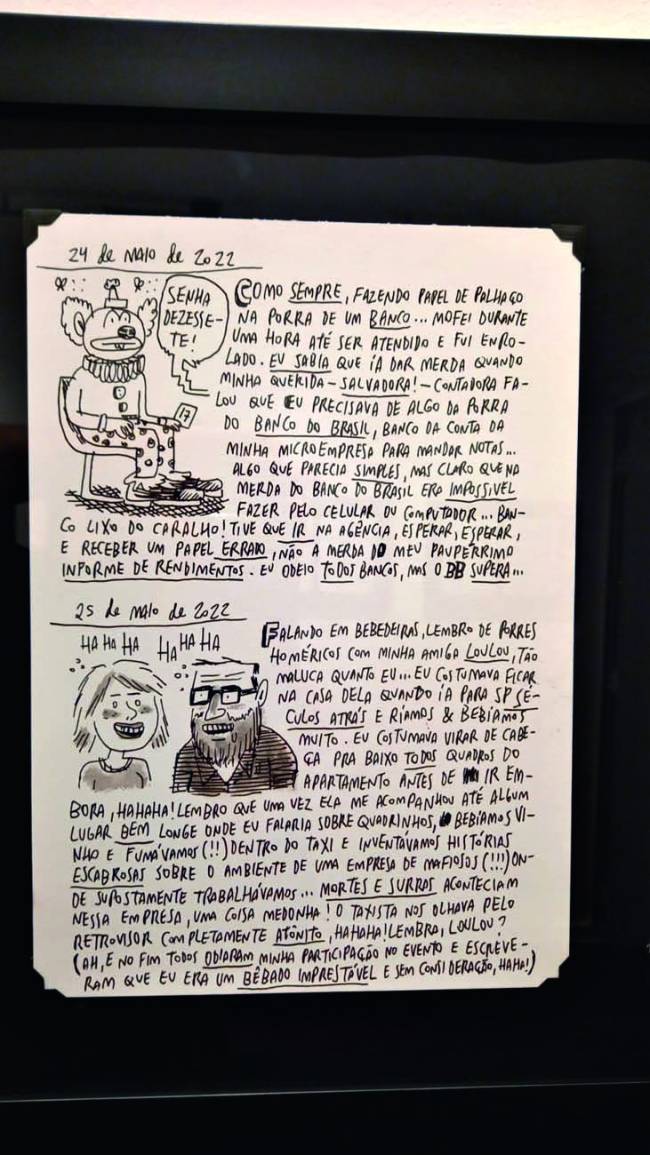 24 de MAIO de 2022
SENHA
DEZESSE-
TE!
17
COMO SEMPRE, FAZENDO PAPEL DE PALHAÇO
NA PORRA DE UM BANCO... MOFEI DURANTE
UMA HORA ATÉ SER ATENDIDO E FUI ENRO-
LADO. EU SABIA QUE ÍA DAR MERDA QUANDO
MINHA QUERIDA - SALVADORA! - CONTADORA FA-
LOU QUE EU PRECISAVA DE ALGO DA PORRA
DO BANCO DO BRASIL, BANCO DA CONTA DA
MINHA MICROEMPRESA PARA MANDAR NOTAS...
ALGO QUE PARECIA SIMPLES, MAS CLARO QUE NA
MERDA DO BANCO DO BRASIL ERA IMPOSSIVEL
FAZER PELO CELULAR OU COMPUTADOR... BAN-
CO LIXO DO CARALHO! TIVE QUE IR NA AGÊNCIA, ESPERAR, ESPERAR,
E RECEBER UM PAPEL ERRADO, NÃO A MERDA DO MEU PAUPÉRRIMO
INFORME DE RENDIMENTOS. EU ODEIO TODOS BANCOS, MAS O BB SUPERA...
25 de MAIO de 2022
HA HA HA HA HA HA HA
FALANDO EM BEBEDEIRAS, LEMBRO DE PORRES
HOMÉRICOS COM MINHA AMIGA LOULOU, TÃO
MALUCA QUANTO EU... EU COSTUMAVA FICAR
NA CASA DELA QUANDO ÍA PARA SP SÉ-
CULOS ATRÁS E RÍAMOS & BEBÍAMOS
MUITO. EU COSTUMAVA VIRAR DE CABE-
ÇA PRA BAIXO TODOS QUADROS DO
APARTAMENTO ANTES DE IR EM-
BORA, HAHAHA! LEMBRO QUE UMA VEZ ELA ME ACOMPANHOU ATÉ ALGUM
LUGAR BEM LONGE ONDE EU FALARIA SOBRE QUADRINHOS, BEBÍAMOS VI-
NHO E FUMÁVAMOS (!!) DENTRO DO TAXI E INVENTÁVAMOS HISTÓRIAS
ESCABROSAS SOBRE O AMBIENTE DE UMA EMPRESA DE MAFIOSOS (!!!) ON-
DE SUPOSTAMENTE TRABALHÁVAMOS... MORTES E SURRAS ACONTECIAM
NESSA EMPRESA, UMA COISA MEDONHA! O TAXISTA NOS OLHAVA PELO
RETROVISOR COMPLETAMENTE ATÔNITO, HAHAHA! LEMBRA, LOULOU?
(AH, E NO FIM TODOS ODIARAM MINHA PARTICIPAÇÃO NO EVENTO E ESCREVE-
RAM QUE EU ERA UM BÊBADO IMPRESTÁVEL E SEM CONSIDERAÇÃO, HAHA!)